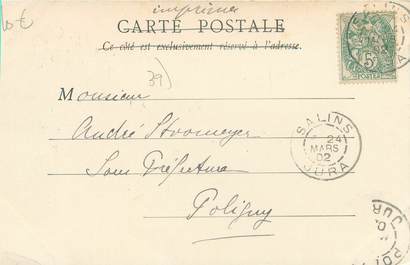 imprimés
10€
CARTE POSTALE
Ce côté est exclusivement réservé à l'adresse.
39)
SALINS
5c
POSTES
Monsieur
André Stromeyer
Sous Préfecture
Poligny
SALINS
24
MARS
02
JURA
JUR